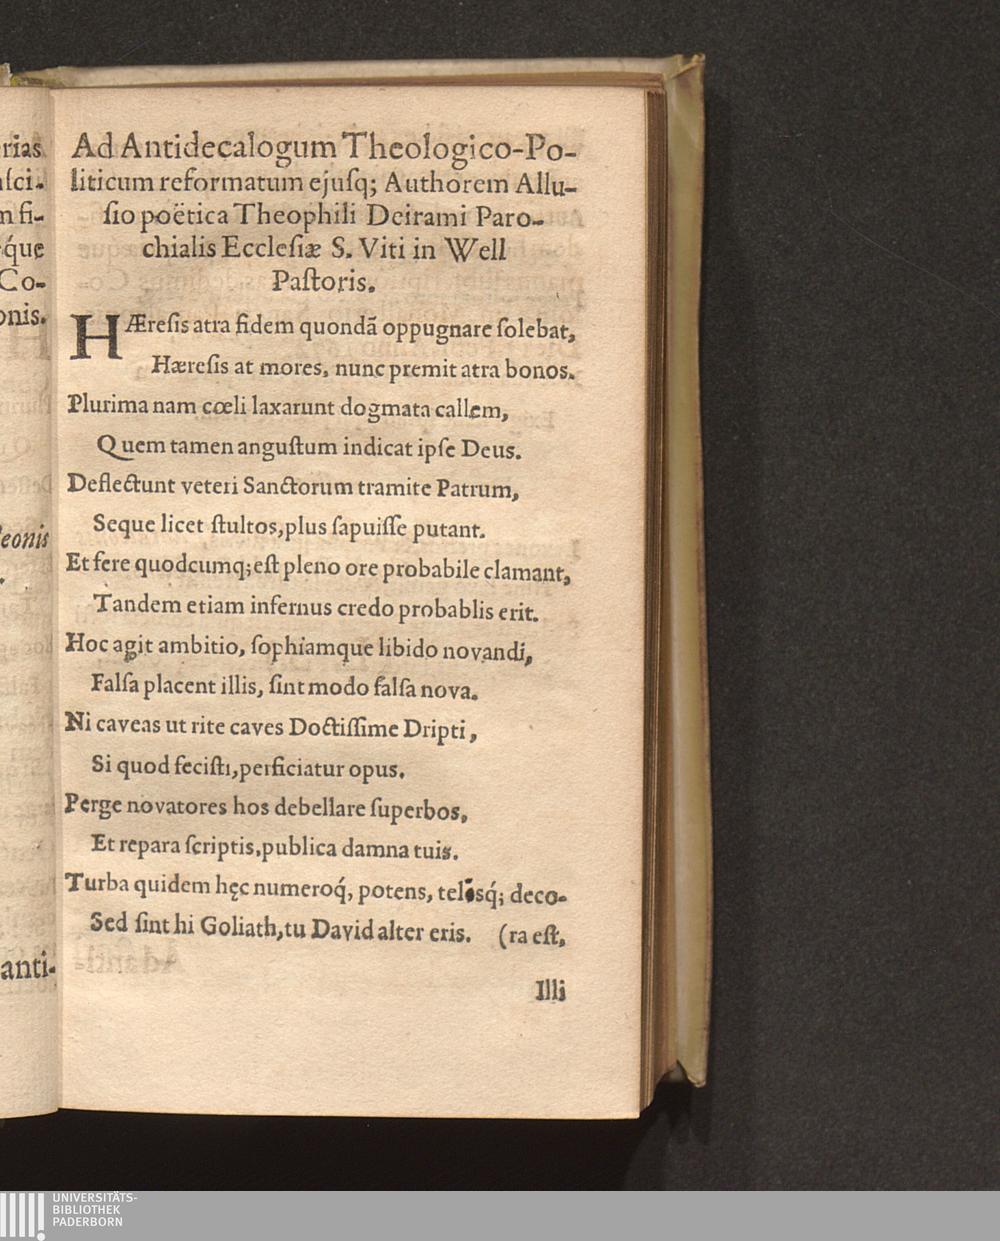 rias
ſci-
m fi-
q́ue
Co-
onis.
eonis
anti-
Ad Antidecalogum Theologico-Po-
liticum reformatum ejuſq; Authorem Allu-
ſio poëtica Theophili Deirami Paro-
chialis Eccleſiæ S. Viti in Well
Paſtoris.
HÆreſis atra fidem quondã oppugnare ſolebat,
Hæreſis at mores, nunc premit atra bonos.
Plurima nam cœli laxarunt dogmata callem,
Quem tamen anguſtum indicat ipſe Deus.
Deflectunt veteri Sanctorum tramite Patrum,
Seque licet ſtultos, plus ſapuiſſe putant.
Et fere quodcumq; eſt pleno ore probabile clamant,
Tandem etiam infernus credo probablis erit.
Hoc agit ambitio, ſophiamque libido novandi,
Falſa placent illis, ſint modo falſa nova.
Ni caveas ut rite caves Doctiſſime Dripti,
Si quod feciſti, perficiatur opus.
Perge novatores hos debellare ſuperbos,
Et repara ſcriptis, publica damna tuis.
Turba quidem hęc numeroq́, potens, telisq́; deco-
Sed ſint hi Goliath, tu David alter eris. (ra eſt,
Illi
UNIVERSITÄTS-
BIBLIOTHEK
PADERBORN